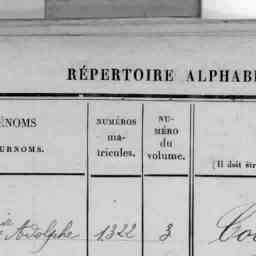 RÉPERTOIRE ALPHAB
ÉNOMS
URNOMS.
NUMÉROS
ma-
tricules.
NU-
MÉRO
du
volume.
[Il doit êtr
Adolphe 1322 3